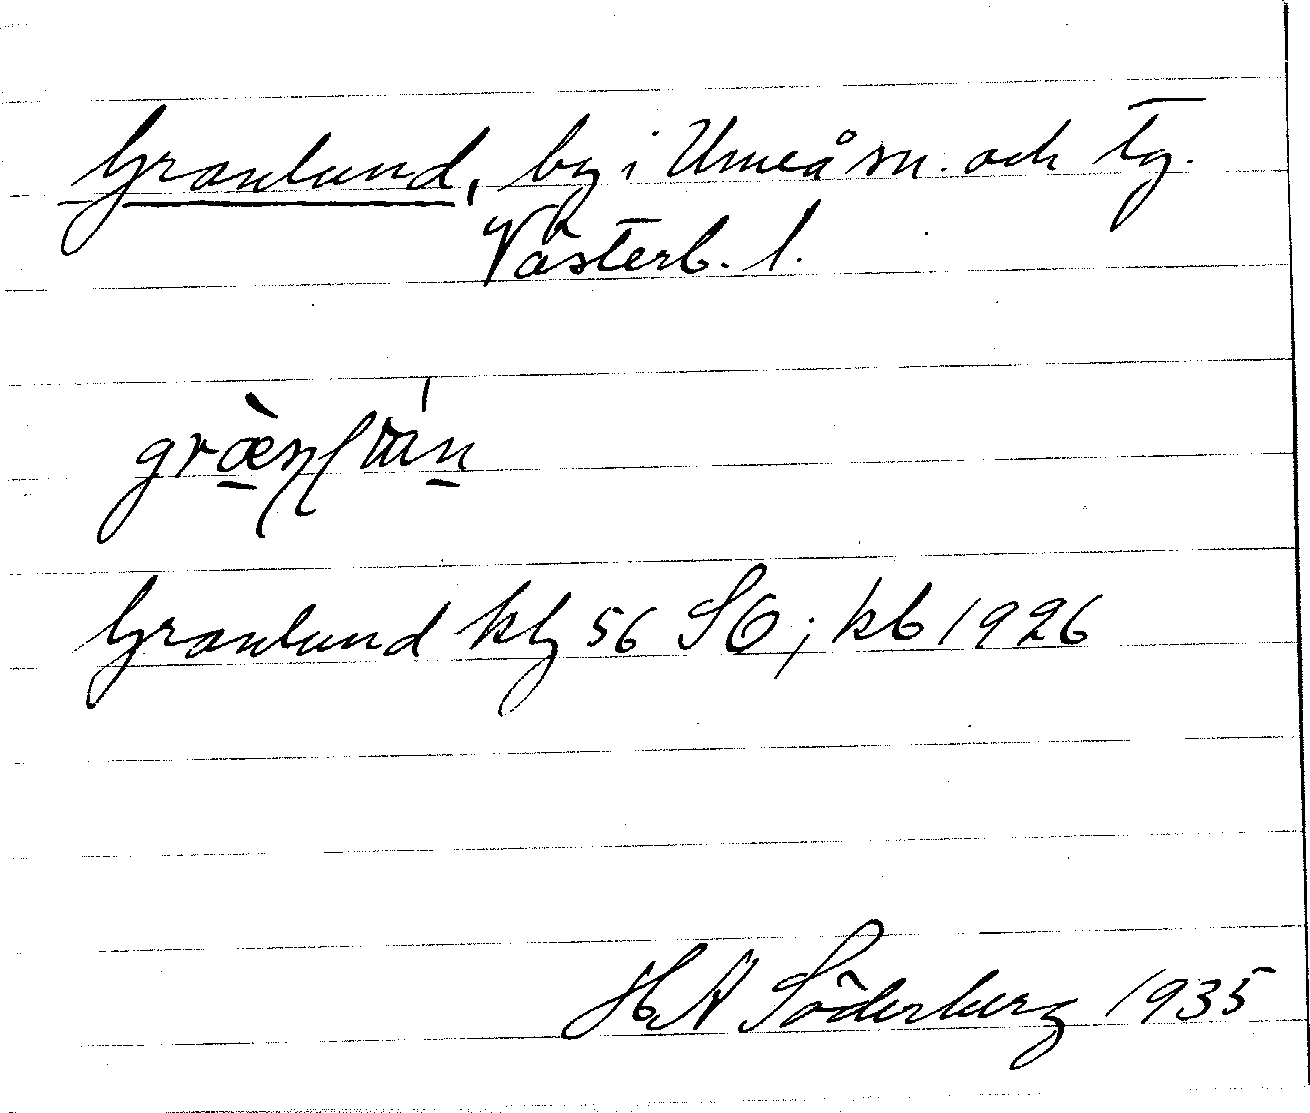 Granlund, by i Umeå sn. och tg.
Västerb. l.
Granlund klg 56 SO; kb 1926
HA Söderberg 1935